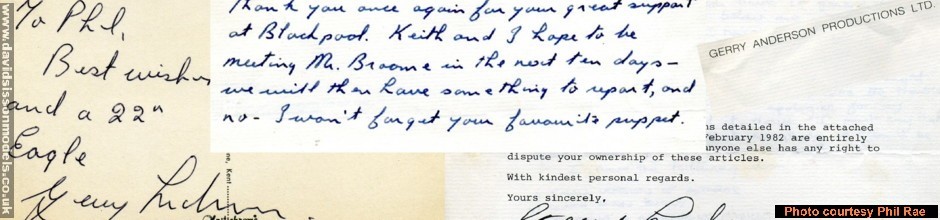 www.davidsissonmodels.co.uk
To Phil,
Best wishes
and a 22"
Eagle
Gerry Anderson
Thank you once again for your great support
at Blackpool. Keith and I hope to be
meeting Mr. Broome in the next ten days -
we will then have something to report, and
no - I won't forget your favourite puppet.
GERRY ANDERSON PRODUCTIONS LTD.
ns detailed in the attached
February 1982 are entirely
anyone else has any right to
dispute your ownership of these articles.
With kindest personal regards.
Yours sincerely,
Photo courtesy Phil Rae